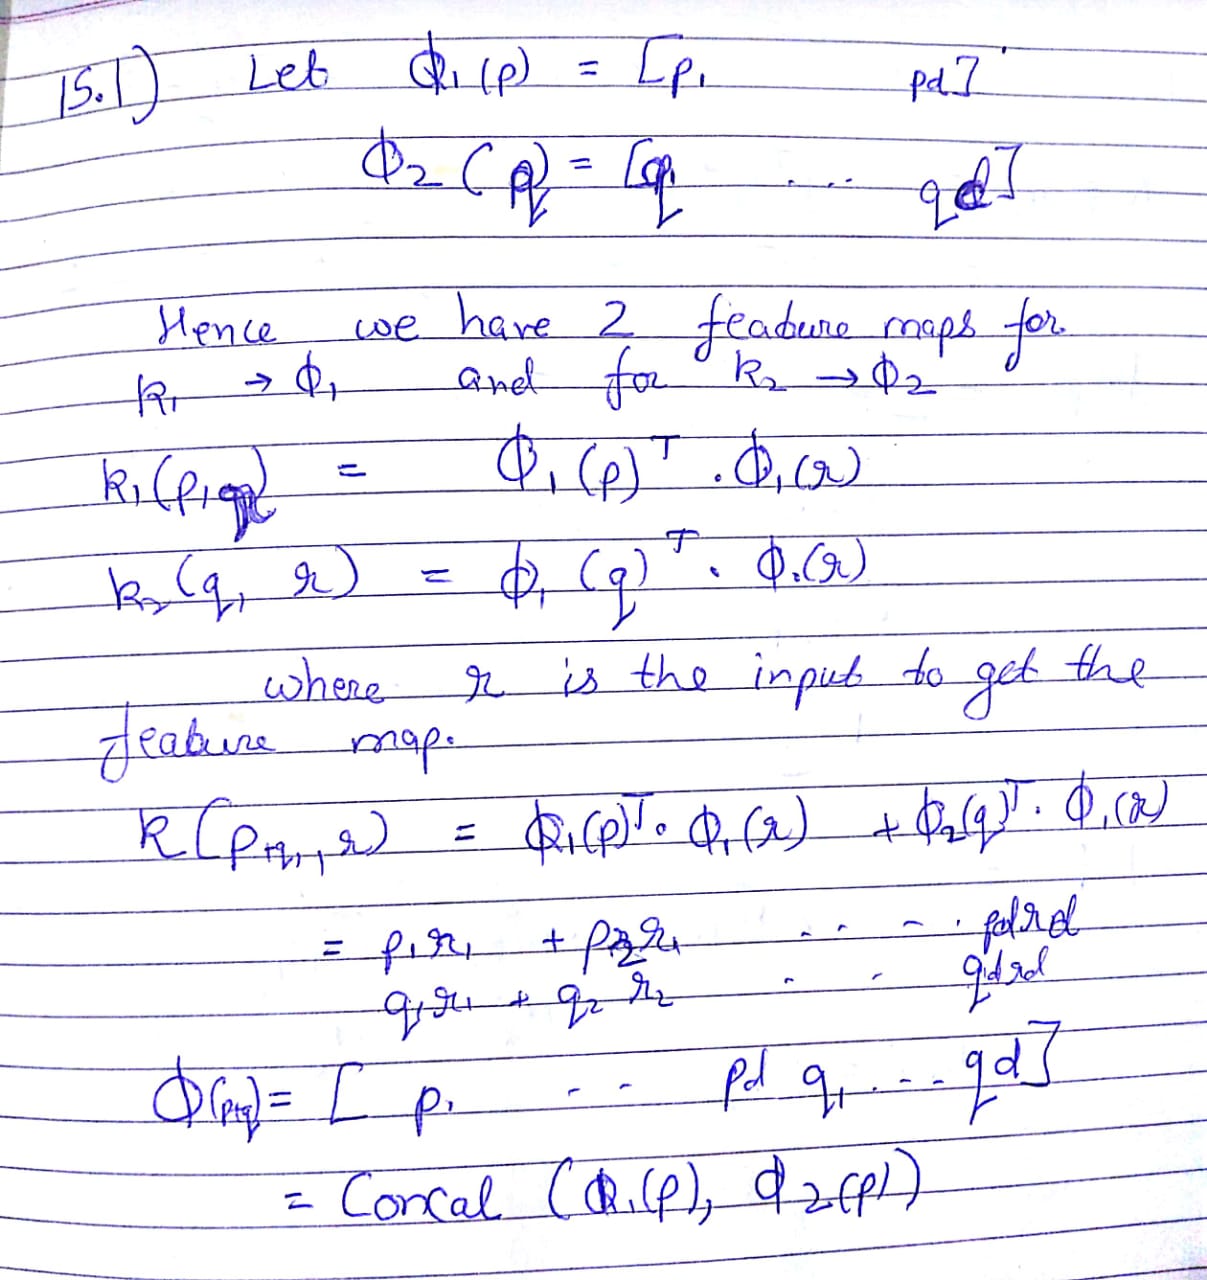 15.1) Let ϕ₁(p) = [p₁ pd]
ϕ₂(q) = [q₁ .... qd]
Hence we have 2 feature maps for
k₁ → ϕ₁ and for k₂ → ϕ₂
k₁(p, r) = ϕ₁(p)ᵀ . ϕ₁(r)
k₂(q, r) = ϕ₁(q)ᵀ . ϕ₁(r)
where r is the input to get the
feature map.
k(p+q, r) = ϕ₁(p)ᵀ. ϕ₁(r) + ϕ₂(q)ᵀ. ϕ₁(r)
= p₁r₁ + p₂r₁ .... pdrd
q₁r₁ + q₂r₂ .. qdrd
ϕ(p+q) = [ p₁ .. pd q₁ ... qd]
= Concat (ϕ₁(p), ϕ₂(p))